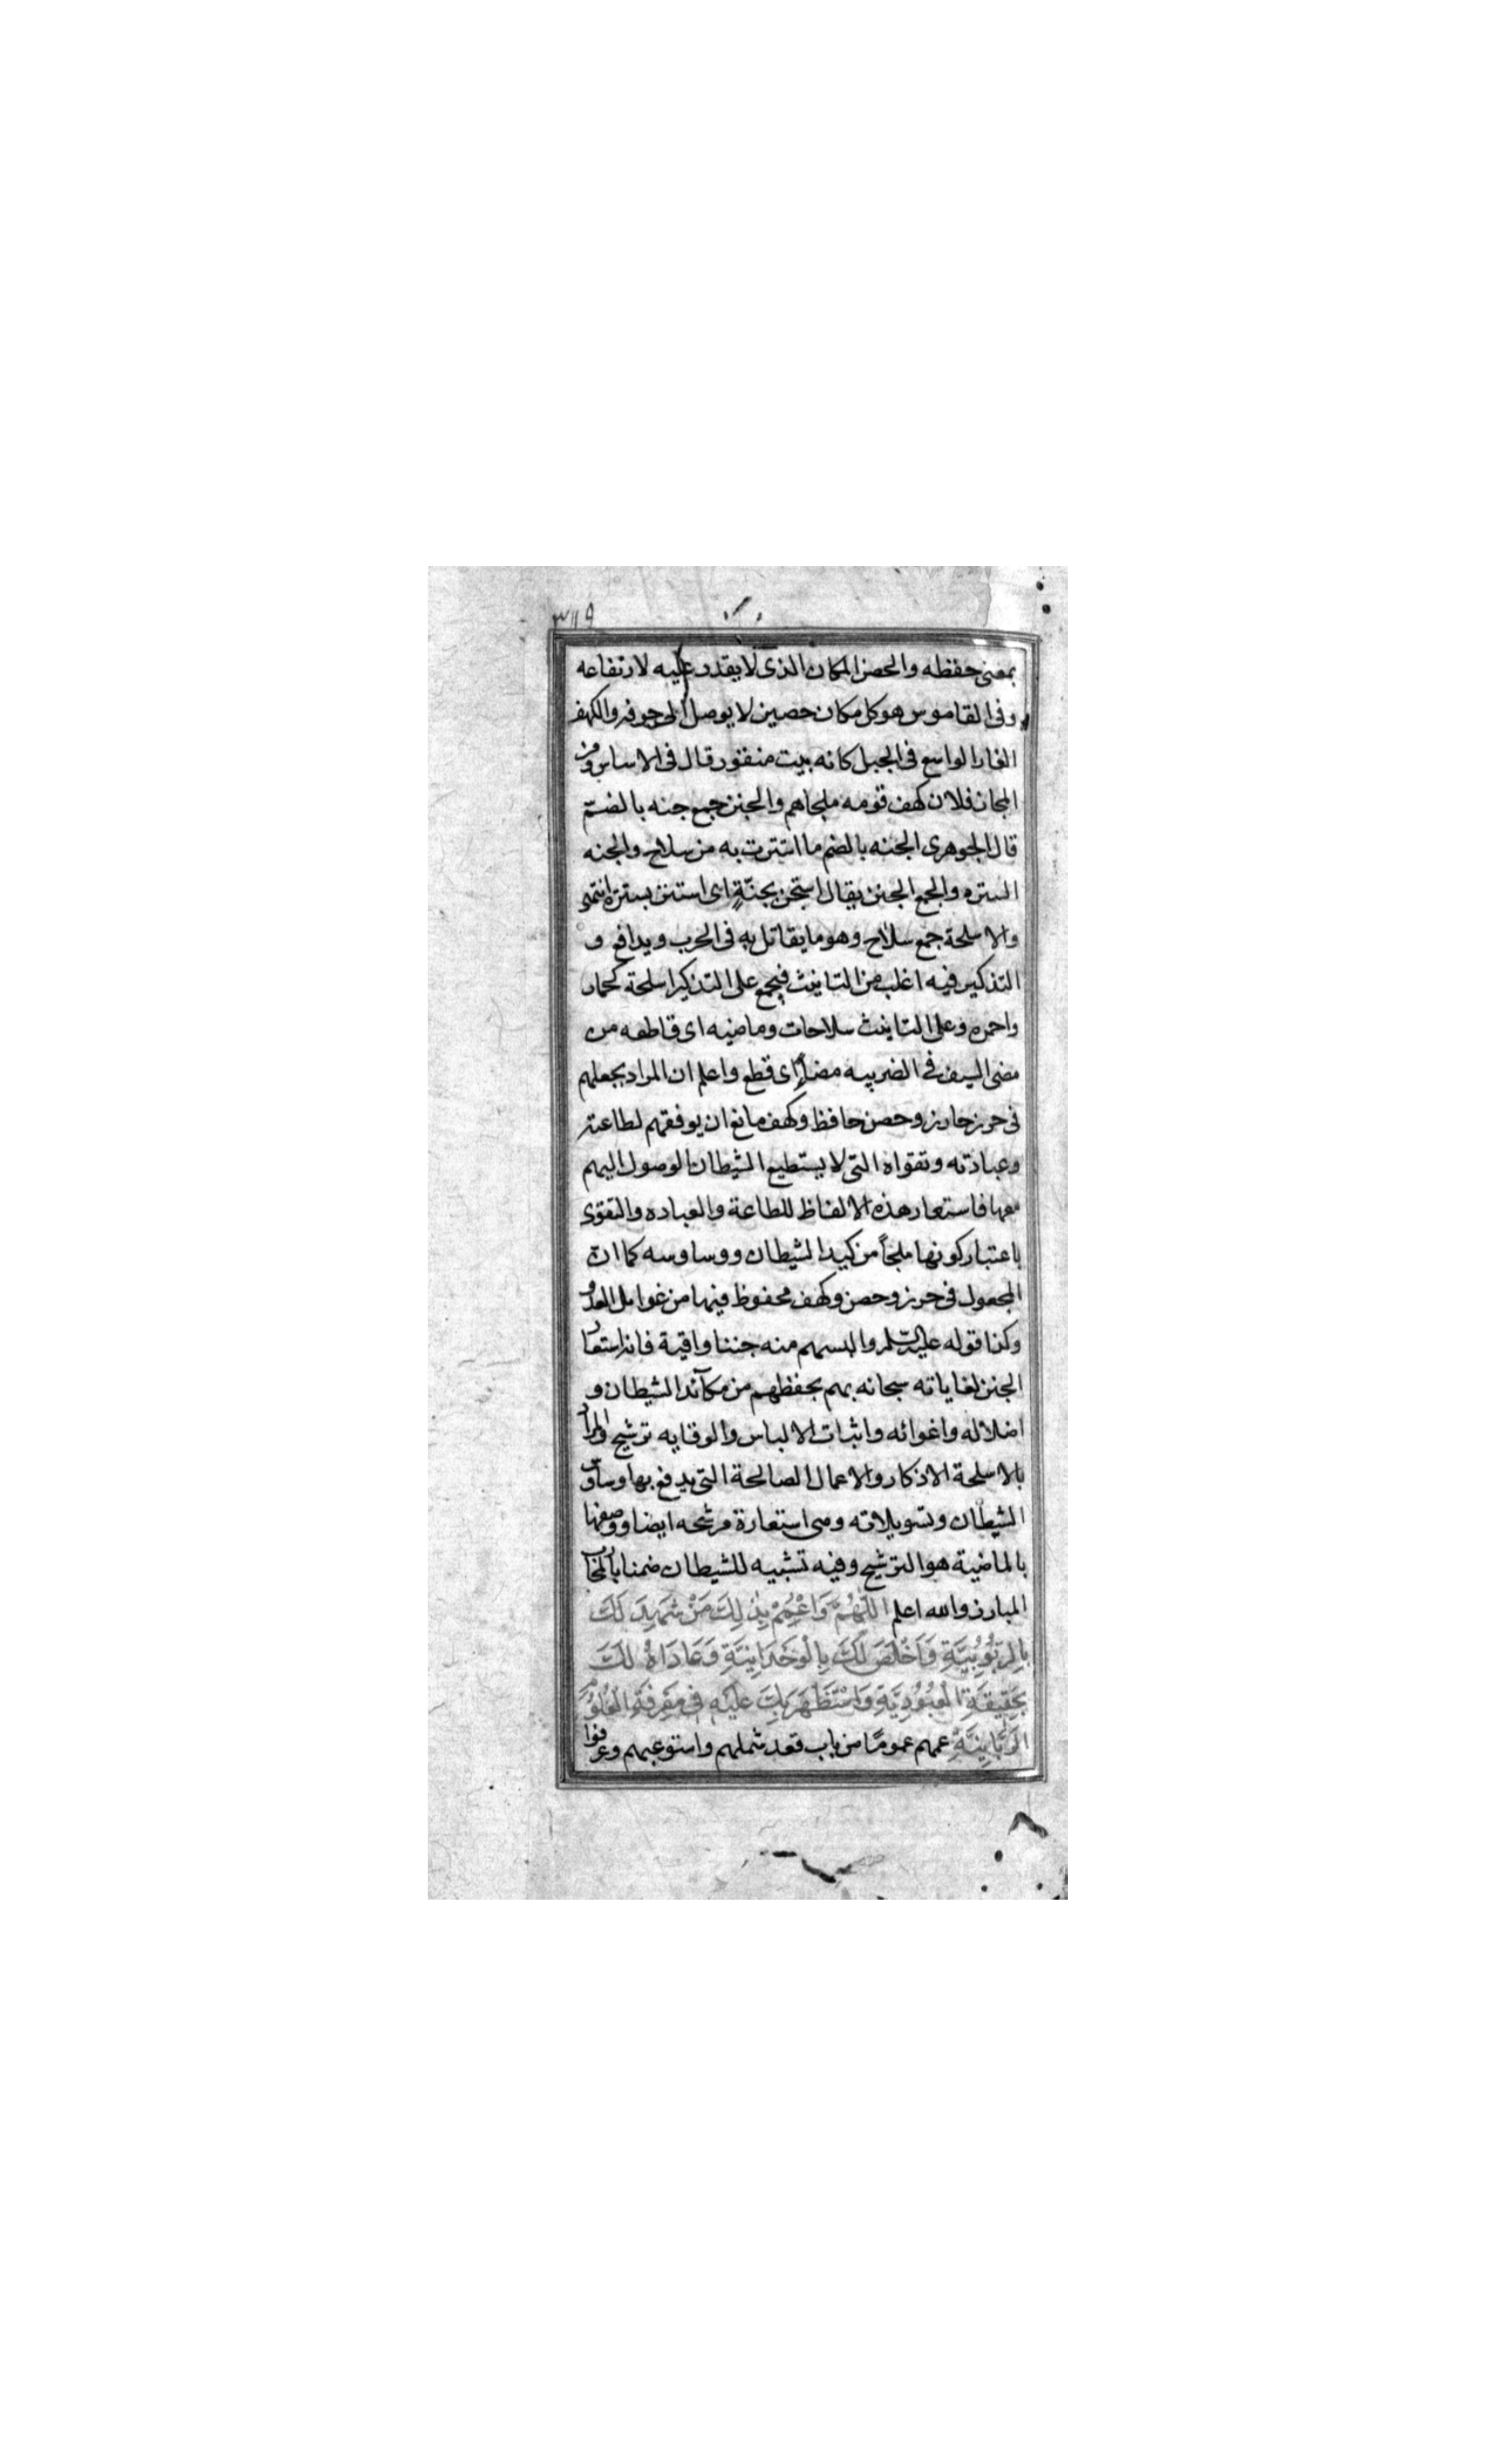 ٣١٩
بمعنى حفظه والحصن المكان الذى لا يقدر عليه لارتفاعه
وفى القاموس هو كل مكان حصين لا يوصل الى جوفه والكهف
الغار الواسع فى الجبل كانه بيت منقور قال فى الاساس ومن
المجاز فلان كهف قومه ملجاهم والجنن جمع جنه بالضمّ
قال الجوهرى الجنه بالضم ما استترت به من سلاح والجنه
الستره والجمع الجنن يقال استجن بجنّةٍ اى استتر بسترة انتهى
والاسلحة جمع سلاح وهو ما يقاتل به فى الحرب ويدافع و
التذكير فيه اغلب من التانيث فيجمع على التذكير اسلحة كحمار
واحمره وعلى التانيث سلاحات وماضيه اى قاطعه من
مضى السيف فى الضريبه مضاءً اى قطع واعلم ان المراد بجعلهم
فى حرز حارز وحصن حافظ وكهف مانع ان يوفقهم لطاعته
وعبادته وتقواه التى لا يستطيع الشيطان الوصول اليهم
معها فاستعار هذه الالفاظ للطاعة والعباده والتقوى
باعتبار كونها ملجأ من كيد الشيطان ووساوسه كما انّ
المجعول فى حرز وحصن وكهف محفوظ فيها من غوايل العدو
وكذا قوله عليه السّلم والبسهم منه جننا واقية فانه استعار
الجنن لغاياته سبحانه بهم بحفظهم من مكآئد الشيطان و
اضلاله واغوائه واثبات الالباس والوقايه ترشيح والمراد
بالاسلحة الاذكار والاعمال الصالحة التى يدفع بها وساوس
الشيطان وتسويلاته وهى استعارة مرشحه ايضا ووصفها
بالماضية هو الترشيح وفيه تشبيه للشيطان ضمنا بالمحارب
المبارز والله اعلم اللّٰهُمَّ وَاعْمُمْ بِذٰلِكَ مَنْ شَهِدَ لَكَ
بِالرُّبُوبِيَّةِ وَاَخْلَصَ لَكَ بِالْوَحْدَانِيَّةِ وَعَادَاهُ لَكَ
بِحَقِيقَةِ الْعُبُودِيَّةِ وَاسْتَظْهَرَ بِكَ عَلَيْهِ فِى مَعْرِفَةِ الْعُلُومِ
الرَّبَّانِيَّةِ عمهم عمومًا من باب قعد شملهم واستوعبهم وعرفوا